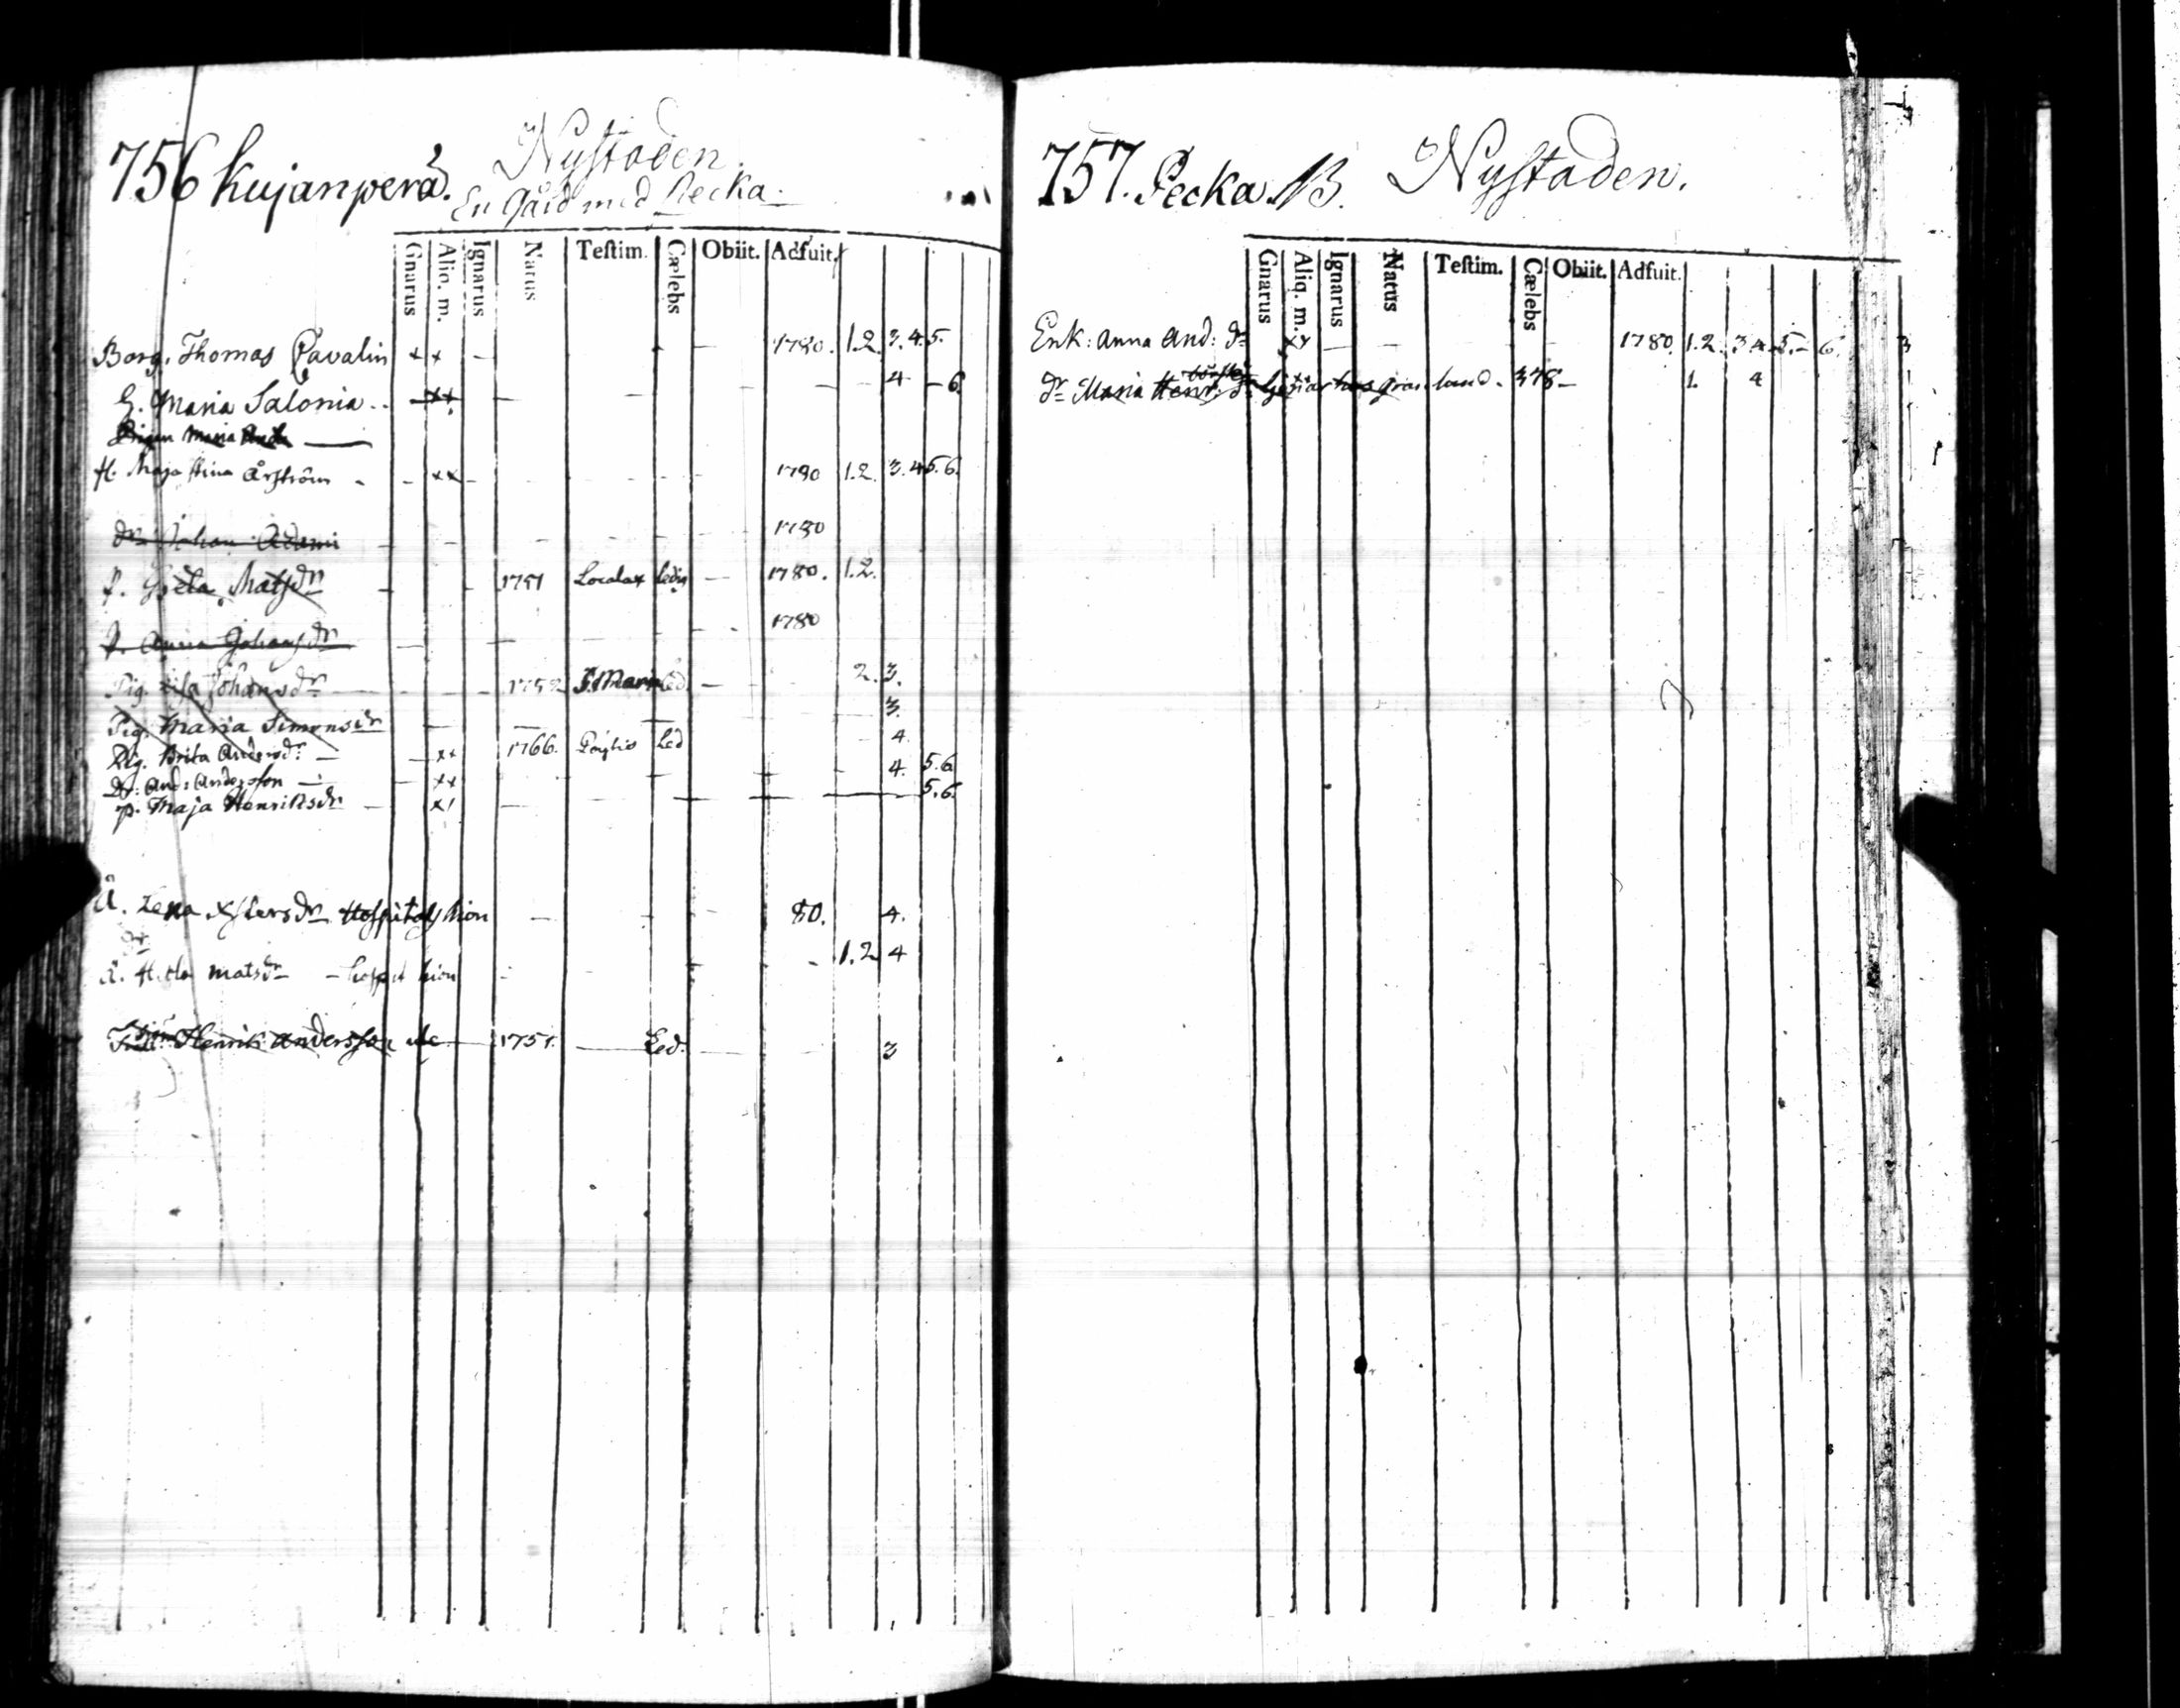 756 Kujanperä. Nystaden.
En Gård med Pecka.
Gnarus Aliq. m. Ignarus Natus Testim. Cælebs Obiit. Adfuit.
Borg. Thomas Cavalin x x 1780. 1.2. 3.4. 5.
H. Maria Salonia xx 4 6.
Pigan Maria
H. Maja Stina Årström xx 1780 1.2. 3.4 5.6.
dr Johan Adami 1780
P. Greta Matsdr 1751 Localax ledig 1780. 1.2.
P. Anna Johansdr 1780
Pig. Lisa Johansdr 1752 Led. 2. 3.
Pig. Maria Simonsdr 3.
Pig. Brita Andersdr xx 1766. Pöytis Led 4.
Dr: And: Andersson xx 4. 5.6
p. Maja Henriksdr x 5.6.
Å. Lena dr Hospitals hion 80. 4.
Å. matsdr hospit hion 1.2 4
Henrik Andersson 1751. Led. 3
757. Pecka. B. Nystaden.
Gnarus Aliq. m. Ignarus Natus Testim. Cælebs Obiit. Adfuit.
Enk: Anna And: dr xx 1780. 1.2. 3.4. 5. 6. 3
dr Maria Henr. dr 378 1. 4